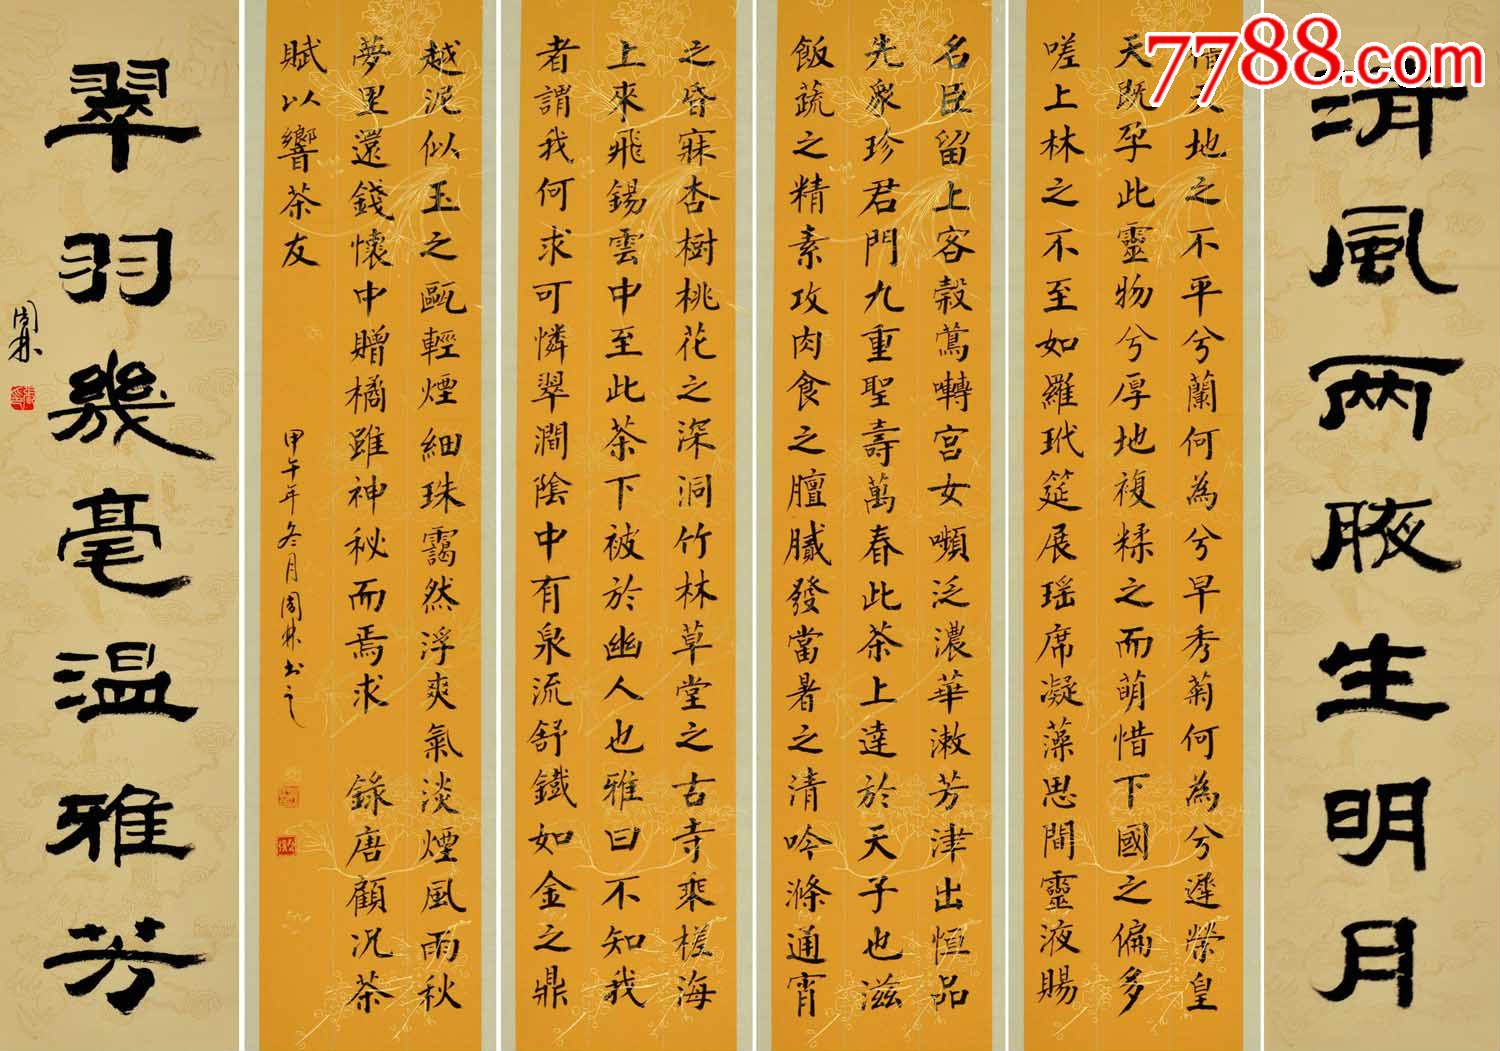 7788.com
清風兩腋生明月
惜天地之不平兮蘭何為兮早秀菊何為兮遲榮皇
天既孕此靈物兮厚地複糅之而萌惜下國之偏多
嗟上林之不至如羅玳筵展瑶席凝藻思間靈液賜
名臣留上客榖鶯囀宫女嚬泛濃華漱芳津出恒品
先衆珍君門九重聖壽萬春此茶上達於天子也滋
飯蔬之精素攻肉食之膻膩發當暑之清吟滌通宵
之昏寐杏樹桃花之深洞竹林草堂之古寺乘槎海
上來飛錫雲中至此茶下被於幽人也雅曰不知我
者謂我何求可憐翠澗陰中有泉流舒鐵如金之鼎
越泥似玉之甌輕煙細珠靄然浮爽氣淡煙風雨秋
夢里還錢懷中贈橘雖神秘而焉求 錄唐顧况茶
賦以響茶友
甲午年冬月周林书之
翠羽幾毫温雅芳
周林